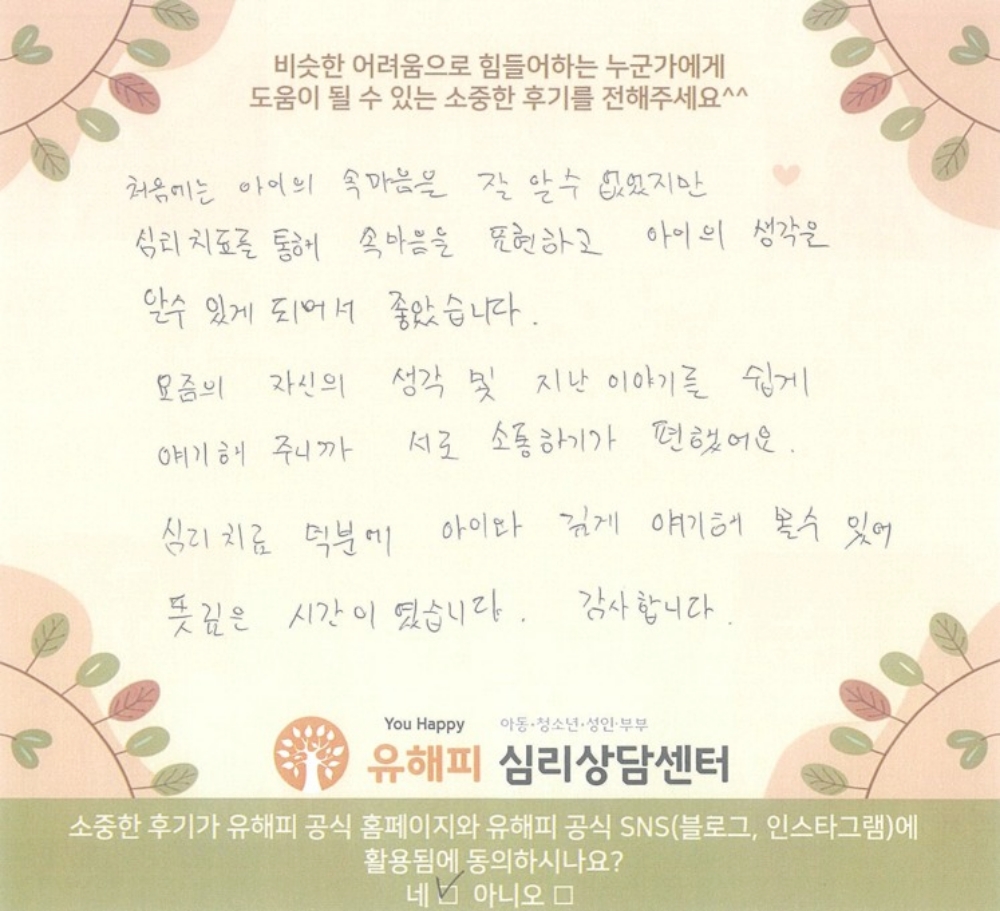 비슷한 어려움으로 힘들어하는 누군가에게
도움이 될 수 있는 소중한 후기를 전해주세요^^
처음에는 아이의 속마음을 잘 알수 없었지만
심리치료를 통해 속마음을 표현하고 아이의 생각을
알수 있게 되어서 좋았습니다.
요즘의 자신의 생각 및 지난 이야기를 쉽게
얘기해 주니까 서로 소통하기가 편했어요.
심리치료 덕분에 아이와 깊게 얘기해 볼수 있어
뜻깊은 시간이 였습니다. 감사합니다.
You Happy 아동·청소년·성인·부부
유해피 심리상담센터
소중한 후기가 유해피 공식 홈페이지와 유해피 공식 SNS(블로그, 인스타그램)에
활용됨에 동의하시나요?
네 ☑ 아니오 □